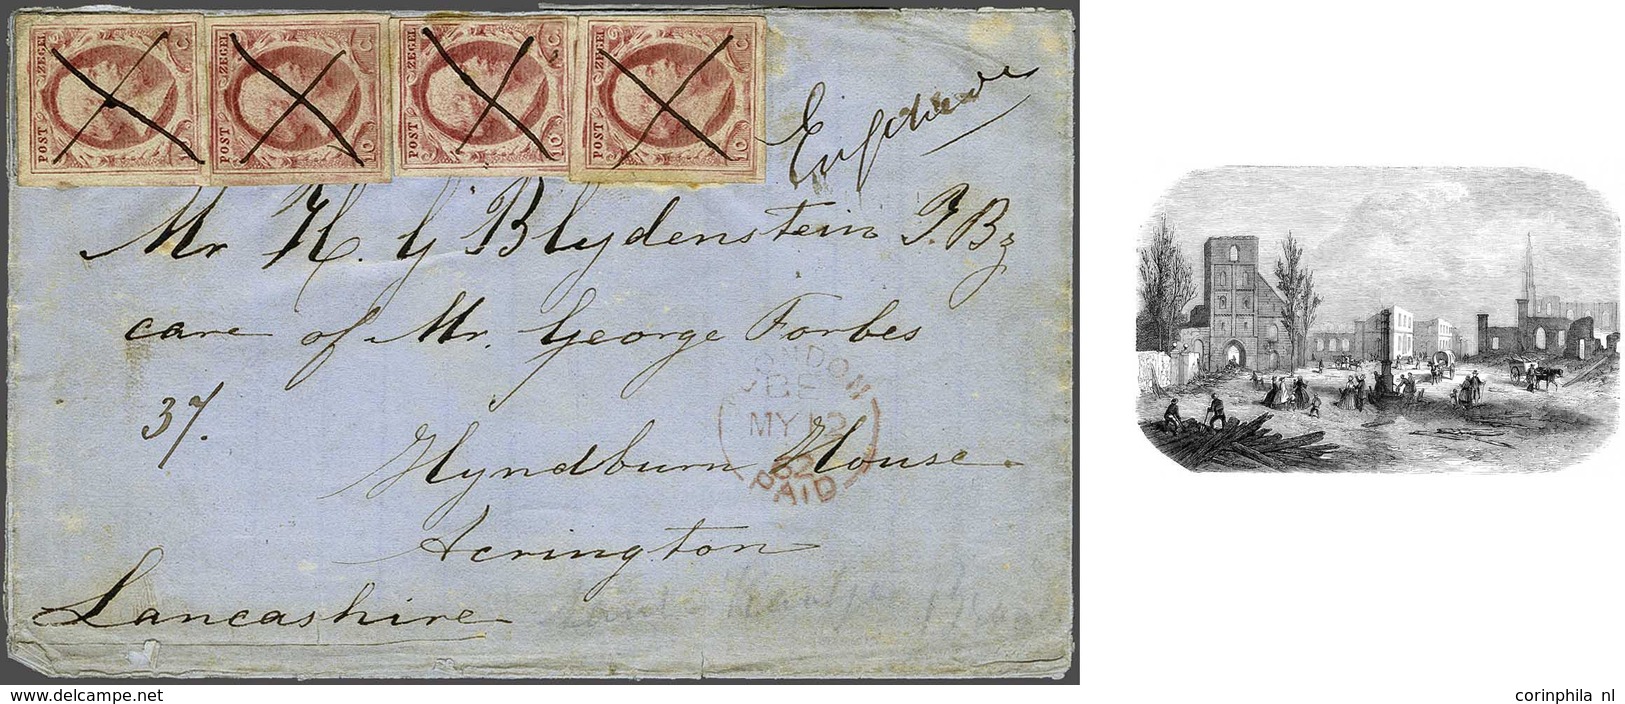 POST ZEGEL 10 C.
POST ZEGEL 10 C.
POST ZEGEL 10 C.
POST ZEGEL 10 C.
Enschede
Mr H. G Blydenstein J.Bz
care of Mr. George Forbes
37.
Hyndburn House.
Acrington
Lancashire
LONDON
MY 12
62
PAID
www.delcampe.net
corinphila nl